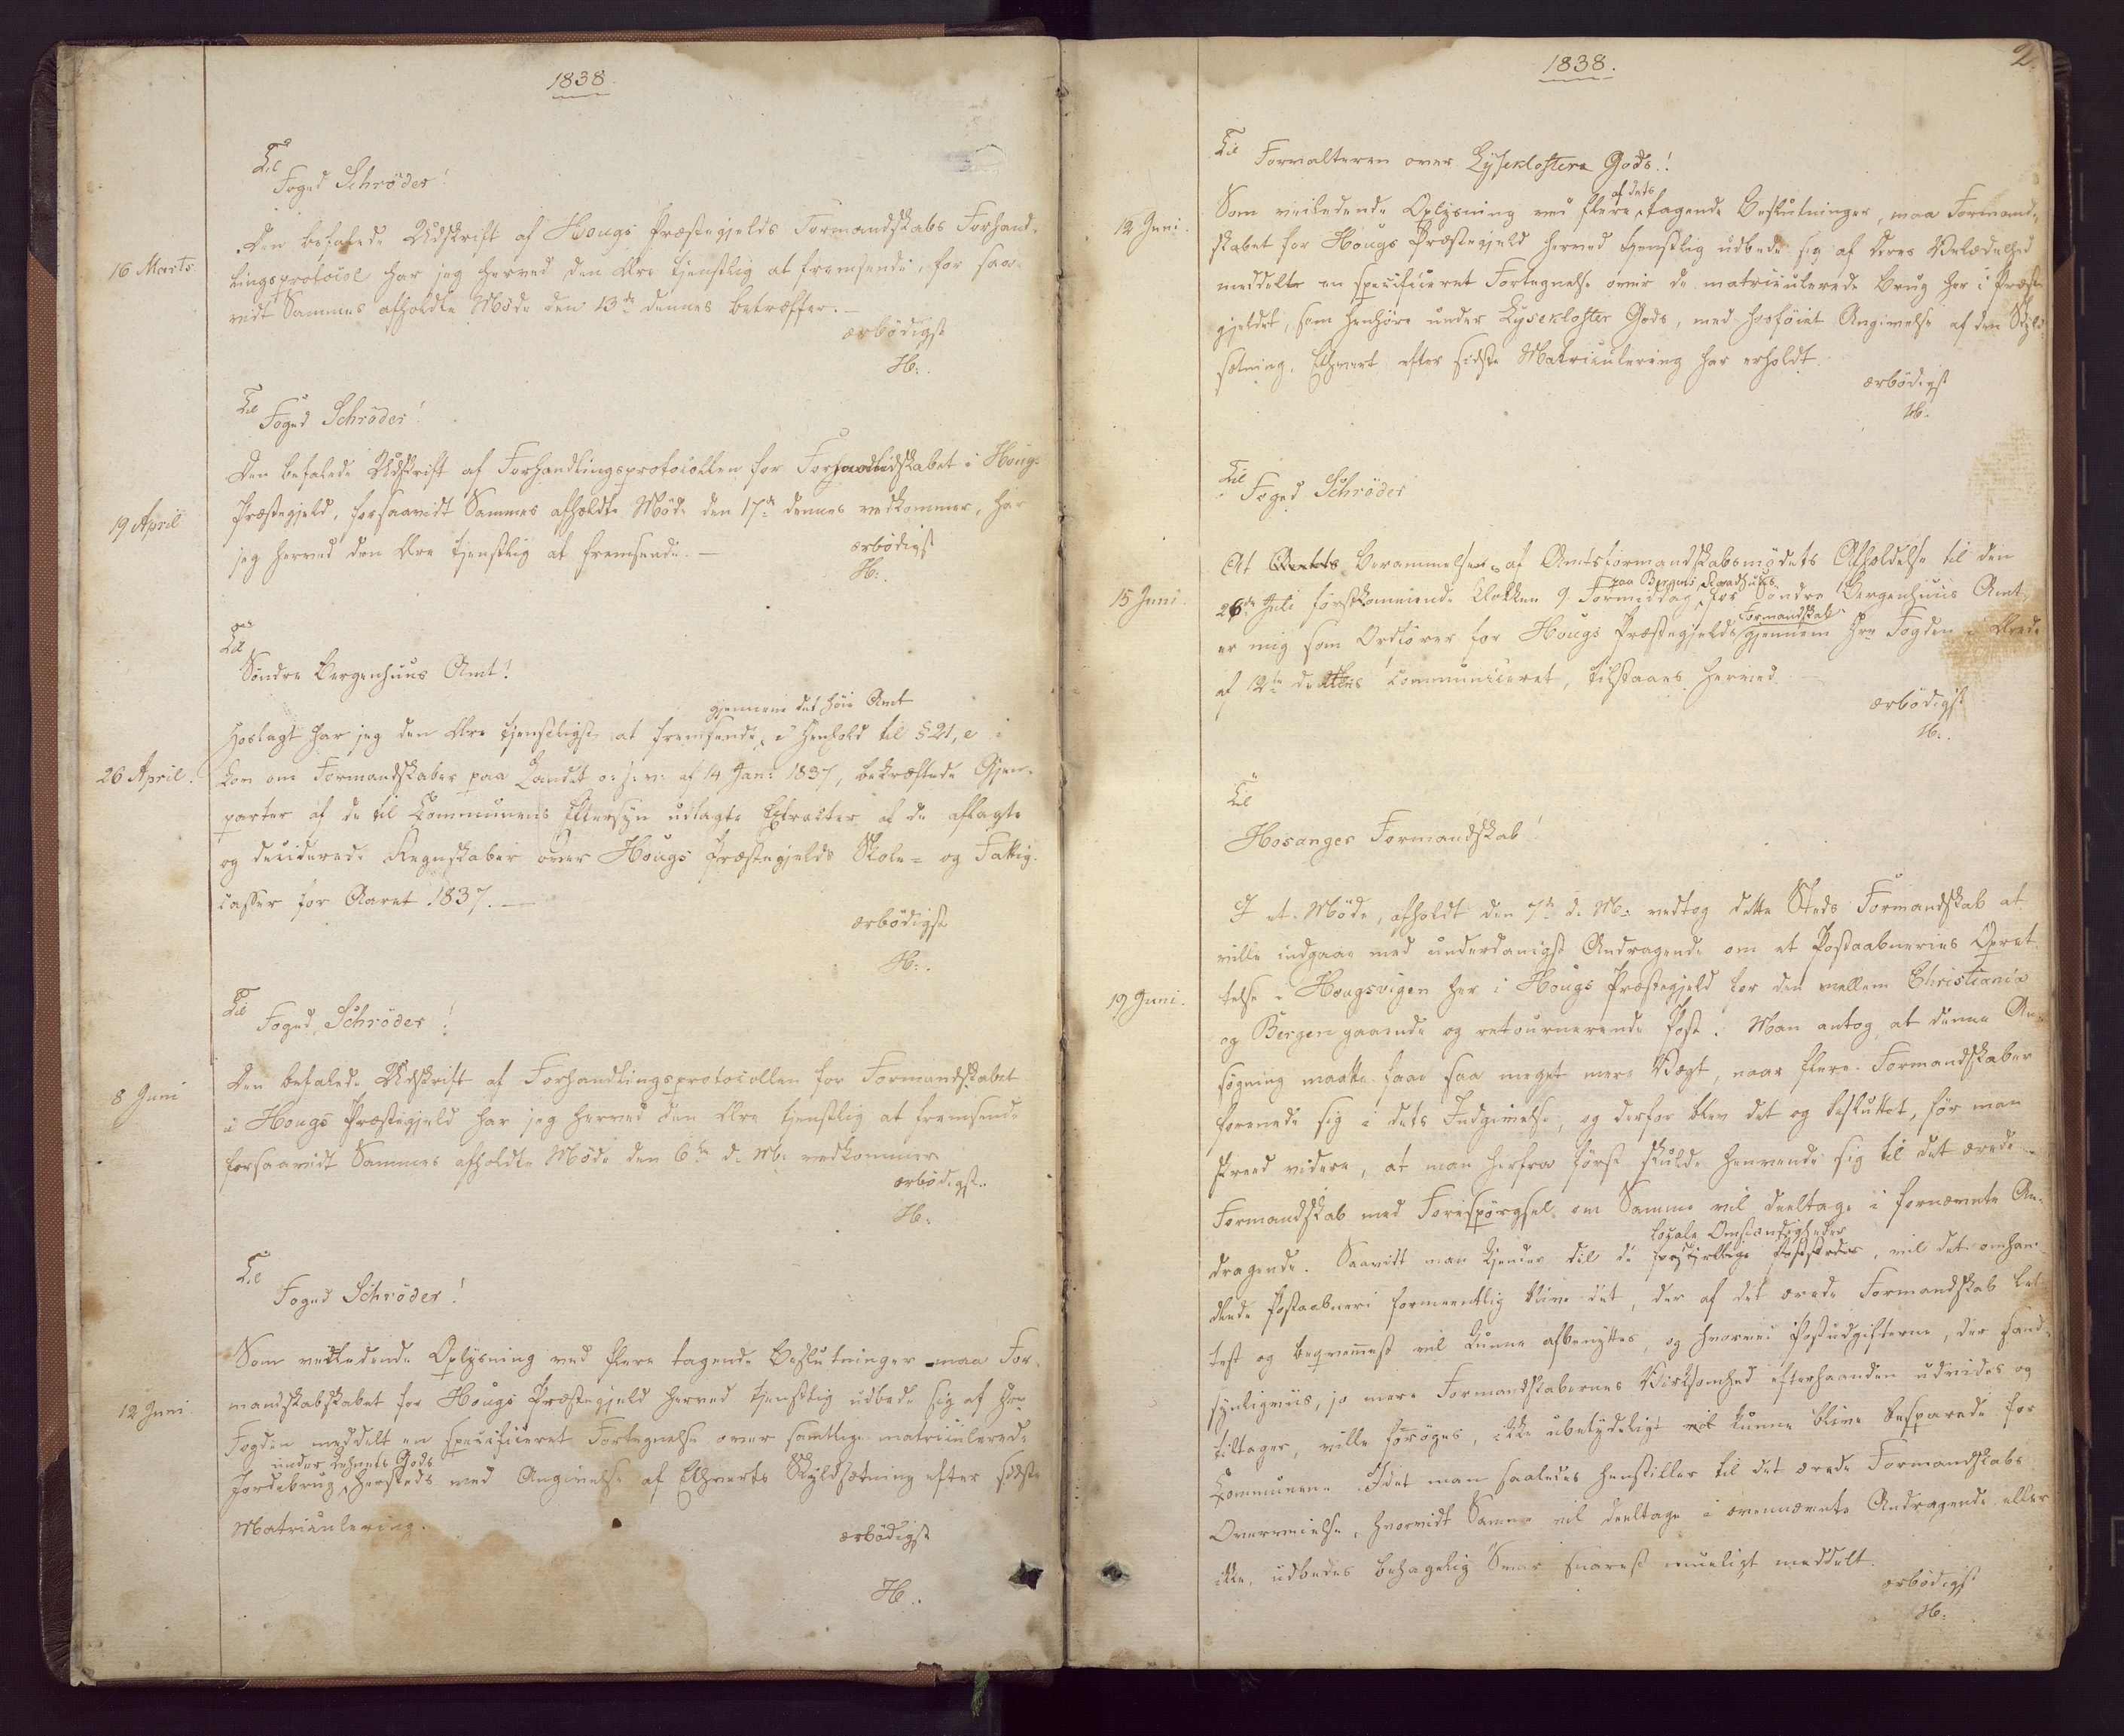 1838
Til
Foged Schröder!
16 Marts.
Den befalede Udskrift af Hougs Præstegjelds Formandskabs Forhand-
lingsprotocol har jeg herved den Ære tjenstlig at fremsende, for saa-
vidt Sammes afholdte Møde den 13de dennes betræffer. —
ærbödigst
H:.
Til
Foged Schröder!
19 April
Den befalede Udskrift af Forhandlingsprotocollen for Formandskabet i Hougs
Præstegjeld, forsaavidt Sammes afholdte Möde den 17de dennes vedkommer, har
jeg herved den Ære tjenstlig at fremsende. —
ærbödigst
H:.
Til
Söndre Bergenhuus Amt!
gjennem det höie Amt
26 April.
Hoslagt har jeg den Ære tjenstligst at fremsende, i Henhold til § 21, e i
Lov om Formandskaber paa Landet o: s: v: af 14 Jan: 1837, bekræftede Gjen-
parter af de til Communens Eftersyn udlagte Extracter af de aflagte
og deciderede Regnskaber over Hougs Præstegjelds Skole- og Fattig-
casser for Aaret 1837. —
ærbödigst
H:.
Til
Foged Schröder!
8 Juni
Den befalede Udskrift af Forhandlingsprotocollen for Formandskabet
i Hougs Præstegjeld har jeg herved den Ære tjenstlig at fremsende
forsaavidt Sammes afholdte Möde den 6te d: M: vedkommer
ærbödigst..
H:
Til
Foged Schröder!
12 Juni
Som veiledende Oplysning ved flere tagende Beslutninger maa For-
mandskabskabet for Hougs Præstegjeld herved tjenstlig udbede sig af Hr
Fogden meddelt en specificeret Fortegnelse over samtlige matriculerede
under Lehnets Gods
Jordebrug hersteds med Angivelse af Ethverts Skyldsætning efter sidste
Matriculering.
ærbödigst
H..
1838.
2.
Til
Forvalteren over Lysekloster Gods!
af dets
12 Juni.
Som veiledende Oplysning ved flere tagende Beslutninger, maa Formand-
skabet for Hougs Præstegjeld herved tjenstlig udbede sig af Deres Velædelhed
meddelt en specificeret Fortegnelse over de matriculerede Brug her i Præste-
gjeldet, som henhöre under Lysekloster Gods, med hosföiet Angivelse af den Skyld-
sætning, Ethvert efter sidste Matriculering har erholdt
ærbödigst
H.
Til
Foged Schröder
15 Juni.
At Berammelsen af Amtsformandskabsmödets Afholdelse til den
paa Bergens Raadhuus
26de Juli förstkommende Klokken 9 Formiddag for Söndre Bergenhuus Amt,
Formandskab
er mig som Ordförer for Hougs Præstegjelds gjennem Hr Fogden i Brev
af 12te dennes communiceret, tilstaaes herved
ærbödigst
H:.
Til
Hosanger Formandskab!
I et Möde, afholdt den 7de d: M: vedtog dette Steds Formandskab at
ville indgaae med underdanigst Andragende om et Postaabneries Opret-
19 Juni.
telse i Hougsvigen her i Hougs Præstegjeld for den mellem Christiania
og Bergen gaaende og retournerende Post. Man antog, at denne An-
sögning maatte faae saa meget mere Vægt, naar flere Formandskaber
forenede sig i dets Indgivelse, og derfor blev det og besluttet, för man
skreed videre, at man herfra först skulde henvende sig til det ærede
Formandskab med Forespörgsel om Samme vil deeltage i fornævnte An-
locale Omstændigheder
dragende. Saavidt man kjender til de forskjellige , vil det omhan-
dlede Postaabneri formeentlig blive det, der af det ærede Formandskab let-
test og beqvemmest vil kunne afbenyttes, og hvorved Postudgifterne, der sand-
synligviis, jo mere Formandskabernes Virksomhed efterhaanden udvides og
tiltager, ville foröges, ikke ubetydeligt vil kunne blive besparede for
Communen. Idet man saaledes henstiller til det ærede Formandskabs
Overveielse, hvorvidt Samme vil deeltage i ovennævnte Andragende eller
ikke, udbedes behagelig Svar snarest mueligt meddelt.
ærbödigst
H: